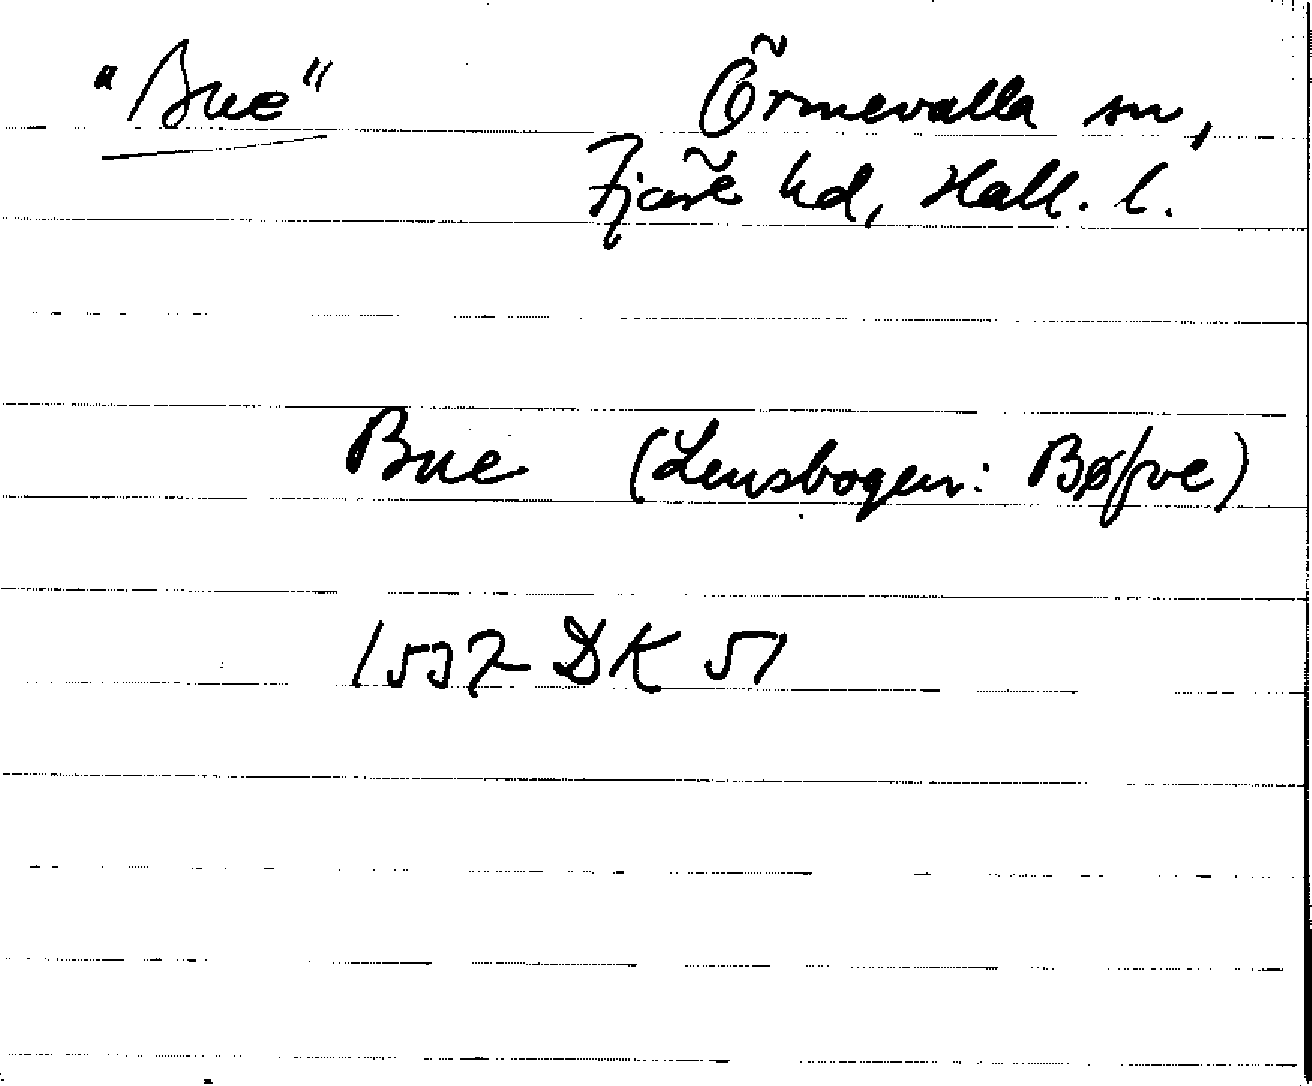 "Bue" Örmevalla sn,
Fjäre hd, Hall. l.
Bue (Lensbogen: Bøfve)
1537 DK 51